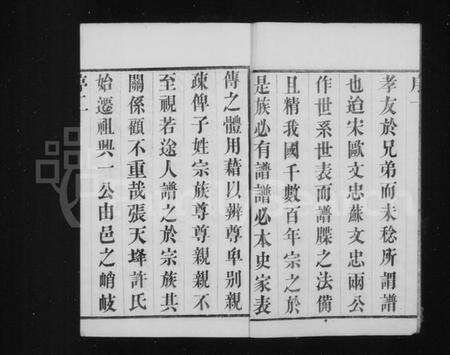 序一
孝友於兄弟而未稔所謂譜
也迨宋歐文忠蘇文忠兩公
作世系世表而譜牒之法備
且精我國千數百年宗之於
是族必有譜譜必本史家表
傳之體用藉以辨尊卑別親
疎俾子姓宗族尊尊親親不
至視若途人譜之於宗族其
關係顧不重哉張天蜂許氏
始遷祖興一公由邑之峭岐